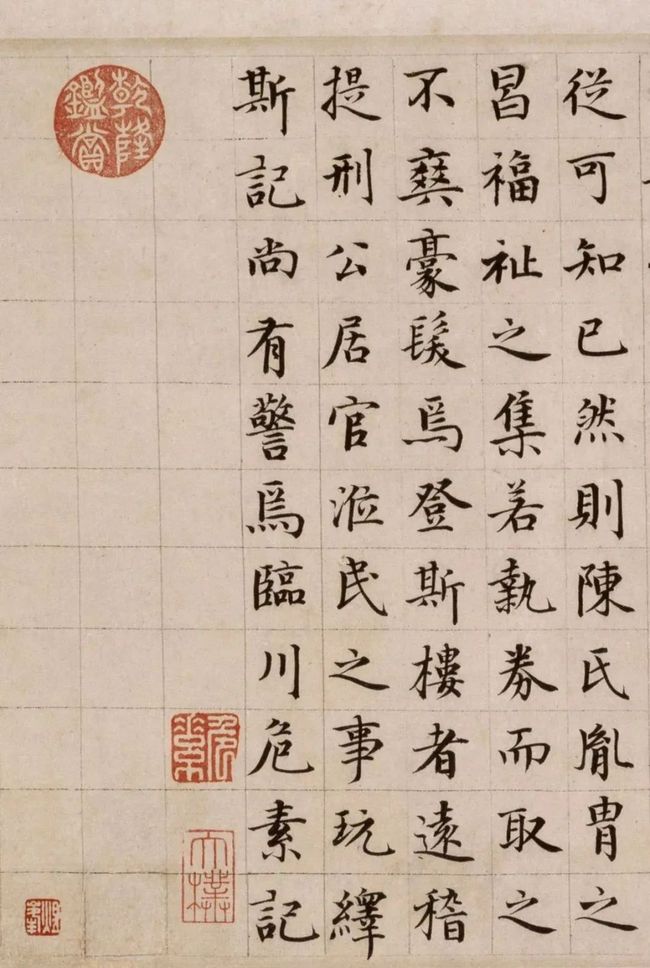 從可知已然則陳氏胤胄之
昌福祉之集若執券而取之
不爽豪髮焉登斯樓者遠稽
提刑公居官涖民之事玩繹
斯記尚有警焉臨川危素記
乾隆鑑賞
危素
太樸